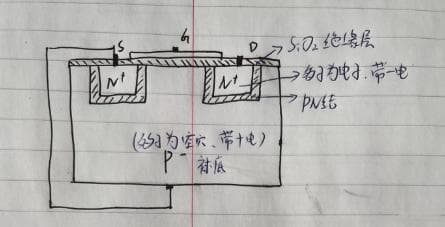 S G D
SiO₂绝缘层
N⁺ N⁺
多子为电子、带一电
PN结
(多子为空穴、带十电)
P⁻
衬底